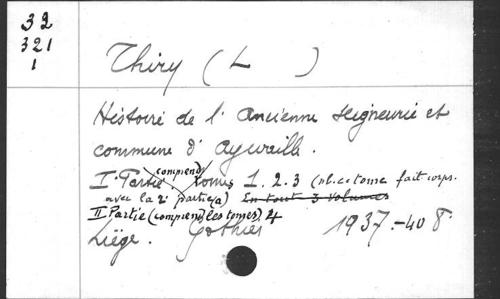 32
321
1
Thiry (L )
Histoire de l' ancienne seigneurie et
commune d' Aywaille.
I° Partie comprend tomes 1. 2. 3 (nb. ce tome fait corps.
avec la 2e partie) En tout 3 volumes
II Partie (comprend les tomes) 4
Liége. Gothier 1937.-40 8°